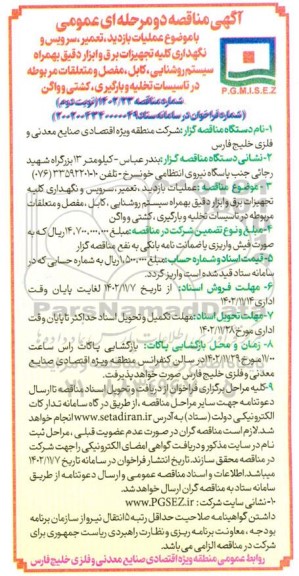 آگهی مناقصه دو مرحله ای عمومی
با موضوع عملیات بازدید، تعمیر، سرویس و
نگهداری کلیه تجهیزات برق و ابزار دقیق بهمراه
سیستم روشنایی، کابل، مفصل و متعلقات مربوطه
در تاسیسات تخلیه و بارگیری، کشتی و واگن
P.G.M.I.S.E.Z
شماره مناقصه ۱۴۰۲/۲۳ (نوبت دوم)
(شماره فراخوان در سامانه ستاد ۲۰۰۲۰۰۴۳۴۰۰۰۰۰۴۹)
۱-نام دستگاه مناقصه گزار: شرکت منطقه ویژه اقتصادی صنایع معدنی و
فلزی خلیج فارس
۲-نشانی دستگاه مناقصه گزار: بندرعباس - کیلومتر ۱۳ بزرگراه شهید
رجائی جنب پاسگاه نیروی انتظامی خونسرخ - تلفن ۳۳۵۹۲۲۰۱۰ (۰۷۶)
۳-موضوع مناقصه: عملیات بازدید، تعمیر، سرویس و نگهداری کلیه
تجهیزات برق و ابزار دقیق به همراه سیستم روشنایی، کابل، مفصل و متعلقات
مربوطه در تاسیسات تخلیه و بارگیری، کشتی و واگن
۴-مبلغ و نوع تضمین شرکت در مناقصه: مبلغ ۱۴,۷۰۰,۰۰۰,۰۰۰ ریال که به
صورت فیش واریزی یا ضمانت نامه بانکی به نفع مناقصه گزار
۵-قیمت اسناد و شماره حساب: مبلغ ۱,۵۰۰,۰۰۰ ریال به شماره حسابی که در
سامانه ستاد قید شده است واریز گردد.
۶- مهلت فروش اسناد: از تاریخ ۱۴۰۲/۱۱/۷ لغایت پایان وقت
اداری ۱۴۰۲/۱۱/۱۴
۷-مهلت تحویل اسناد: مهلت تکمیل و تحویل اسناد حداکثر تا پایان وقت
اداری مورخ ۱۴۰۲/۱۱/۲۸
۸- زمان و محل بازگشایی پاکات: بازگشایی پاکات راس ساعت
۱۱/۰۰ مورخ ۱۴۰۲/۱۱/۲۹ در سالن کنفرانس منطقه ویژه اقتصادی صنایع
معدنی و فلزی خلیج فارس صورت خواهد پذیرفت.
۹-کلیه مراحل برگزاری فراخوان از دریافت و تحویل اسناد مناقصه تا ارسال
دعوتنامه جهت سایر مراحل مناقصه، از طریق درگاه سامانه تدارکات
الکترونیکی دولت (ستاد) به آدرس www.setadiran.ir انجام خواهد
شد. لازم است مناقصه گران در صورت عدم عضویت قبلی، مراحل ثبت
نام در سایت مذکور و دریافت گواهی امضای الکترونیکی را جهت شرکت
در مناقصه محقق سازند. تاریخ انتشار فراخوان در سامانه تاریخ ۱۴۰۲/۱۱/۷
میباشد. اطلاعات و اسناد مناقصه عمومی و ارسال دعوتنامه از طریق
سامانه ستاد به مناقصه گران ارسال خواهد شد.
۱۰-نشانی سایت شرکت: www.PGSEZ.ir
داشتن گواهینامه صلاحیت حداقل رتبه ۵ انتقال نیرو از سازمان برنامه
بودجه، معاونت برنامه ریزی و نظارت راهبردی ریاست جمهوری برای
شرکت در مناقصه الزامی می باشد.
روابط عمومی منطقه ویژه اقتصادی صنایع معدنی و فلزی خلیج فارس